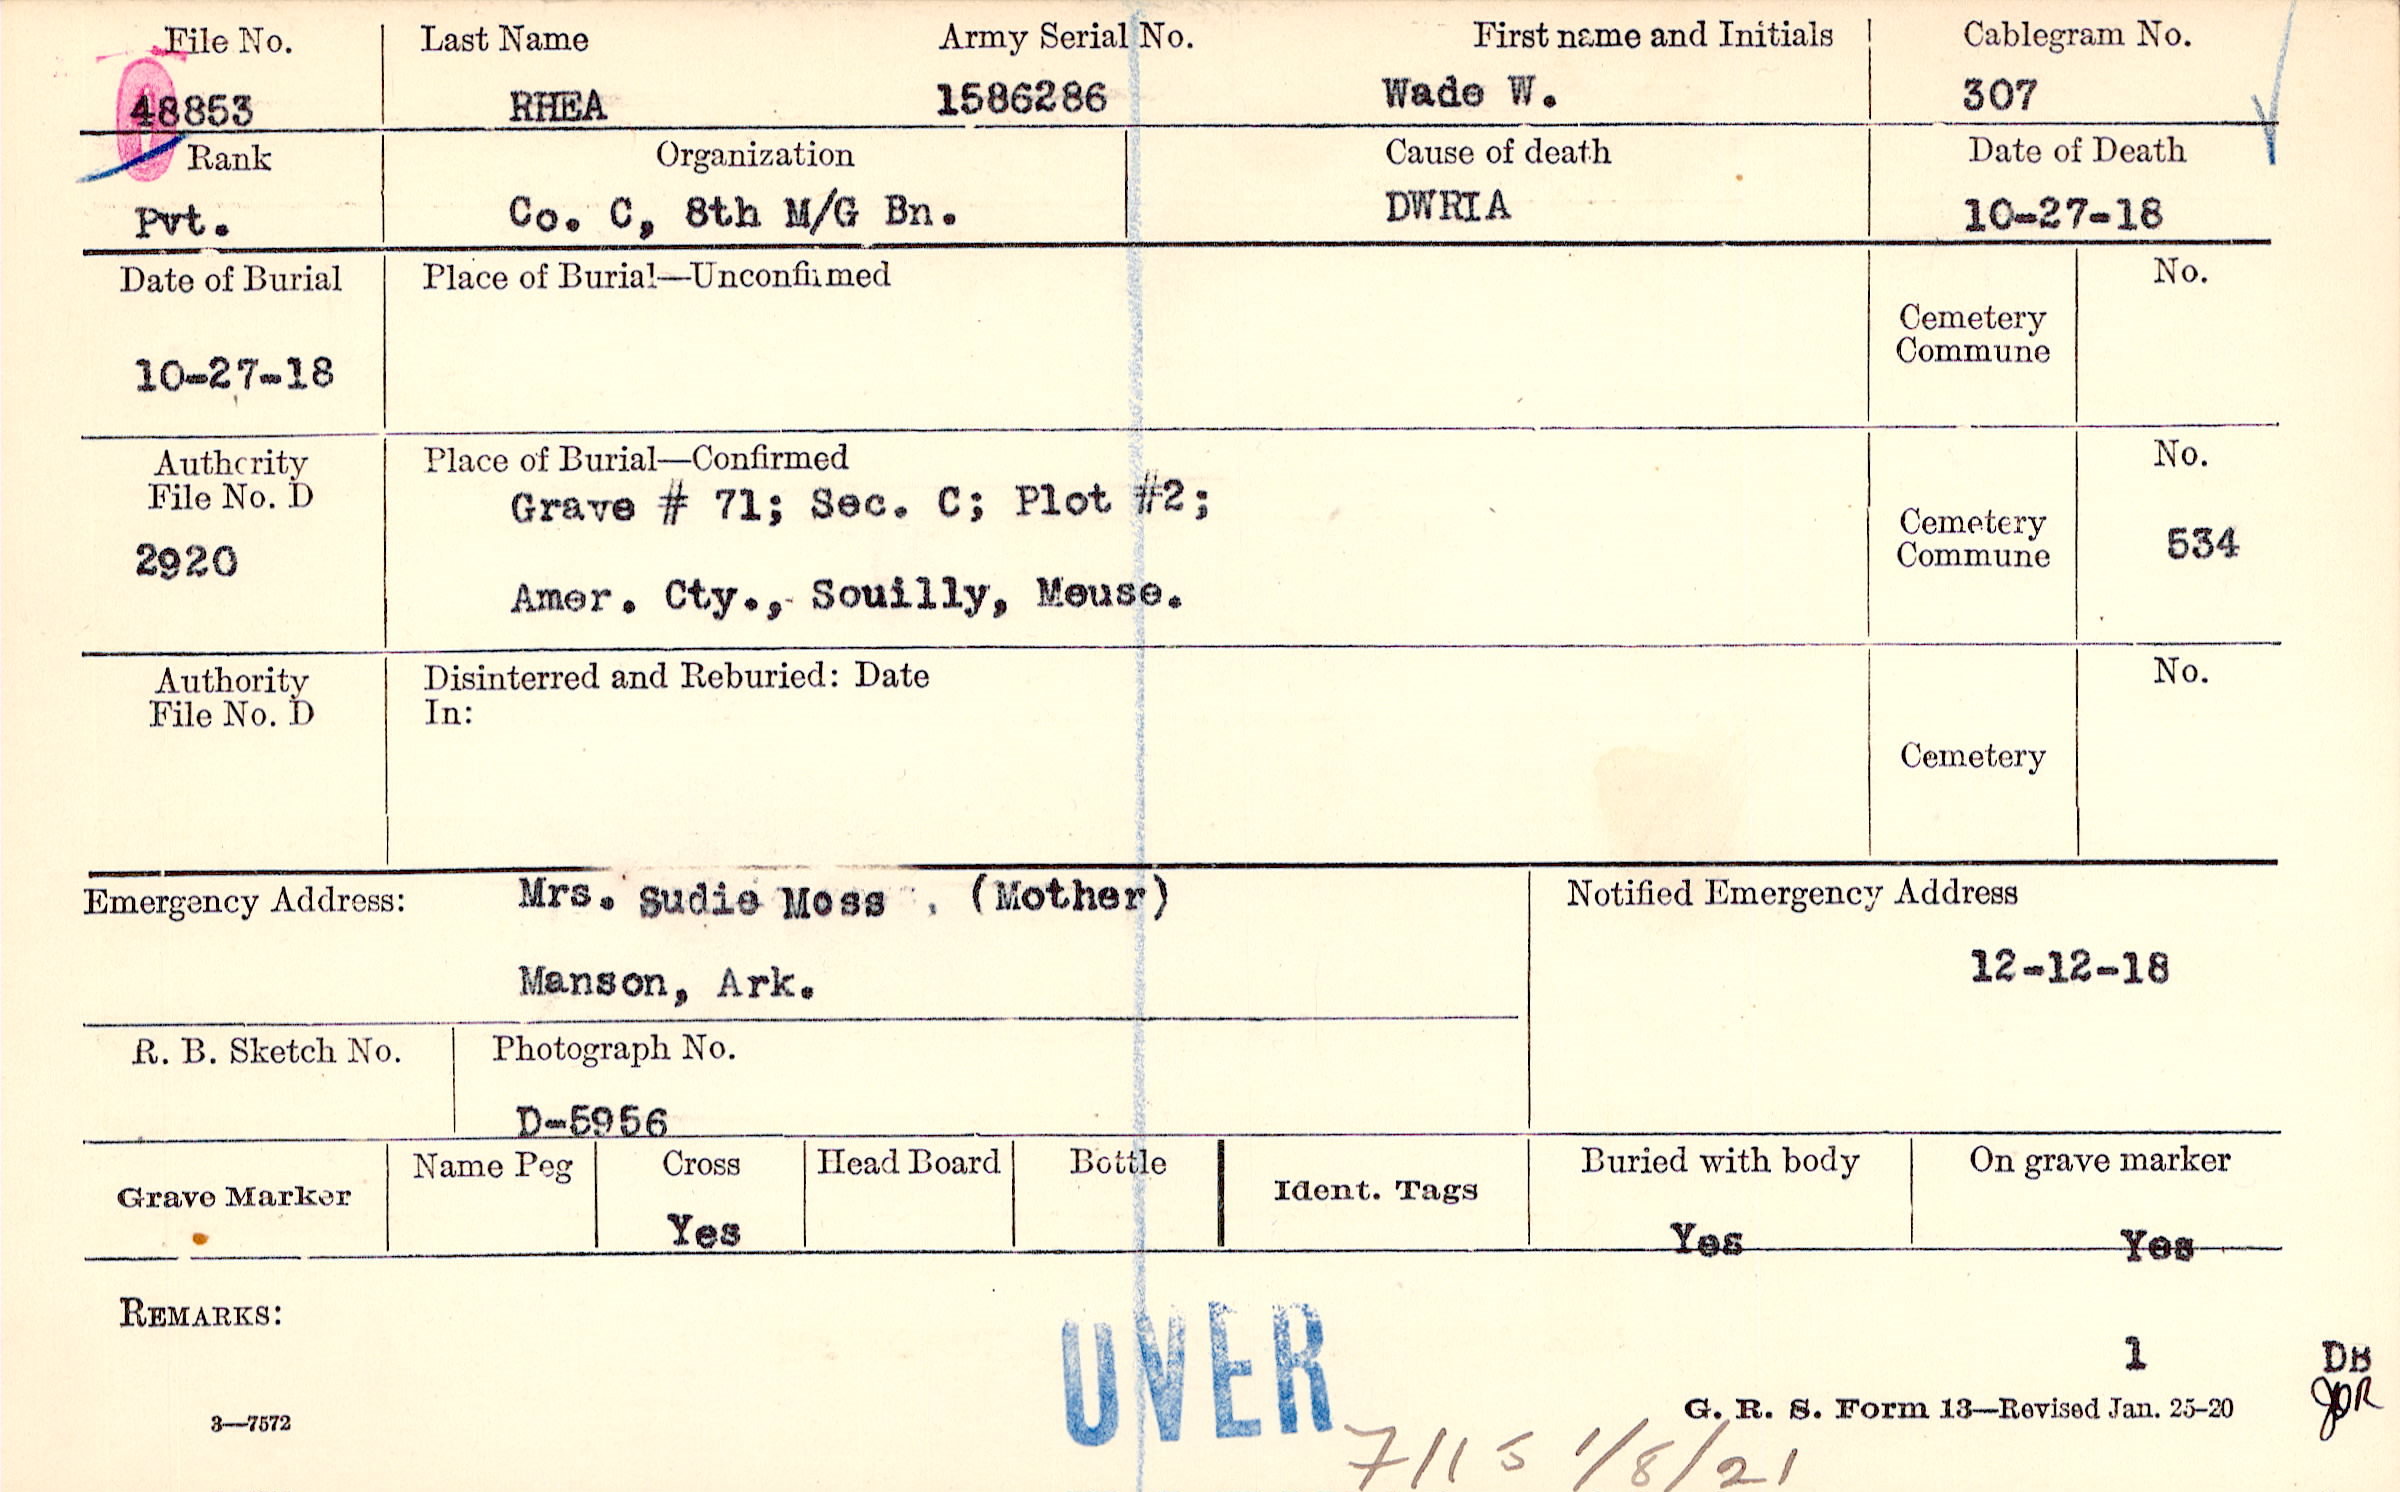 File No. Last Name Army Serial No. First name and Initials Cablegram No.
48853 RHEA 1586286 Wade W. 307
Rank Organization Cause of death Date of Death
Pvt. Co. C, 8th M/G Bn. DWRIA 10-27-18
Date of Burial Place of Burial—Unconfirmed No.
Cemetery
Commune
10-27-18
Authority Place of Burial—Confirmed No.
File No. D
Grave # 71; Sec. C; Plot #2;
Cemetery
Commune
2920 534
Amer. Cty., Souilly, Meuse.
Authority Disinterred and Reburied: Date No.
File No. D In:
Cemetery
Emergency Address: Mrs. Sudie Moss, (Mother) Notified Emergency Address
Manson, Ark. 12-12-18
R. B. Sketch No. Photograph No.
D-5956
Grave Marker Name Peg Cross Head Board Bottle Ident. Tags Buried with body On grave marker
Yes Yes Yes
REMARKS:
OVER
1 DB
JOR
3—7572 G. R. S. Form 13—Revised Jan. 25-20
7/15 1/8/21